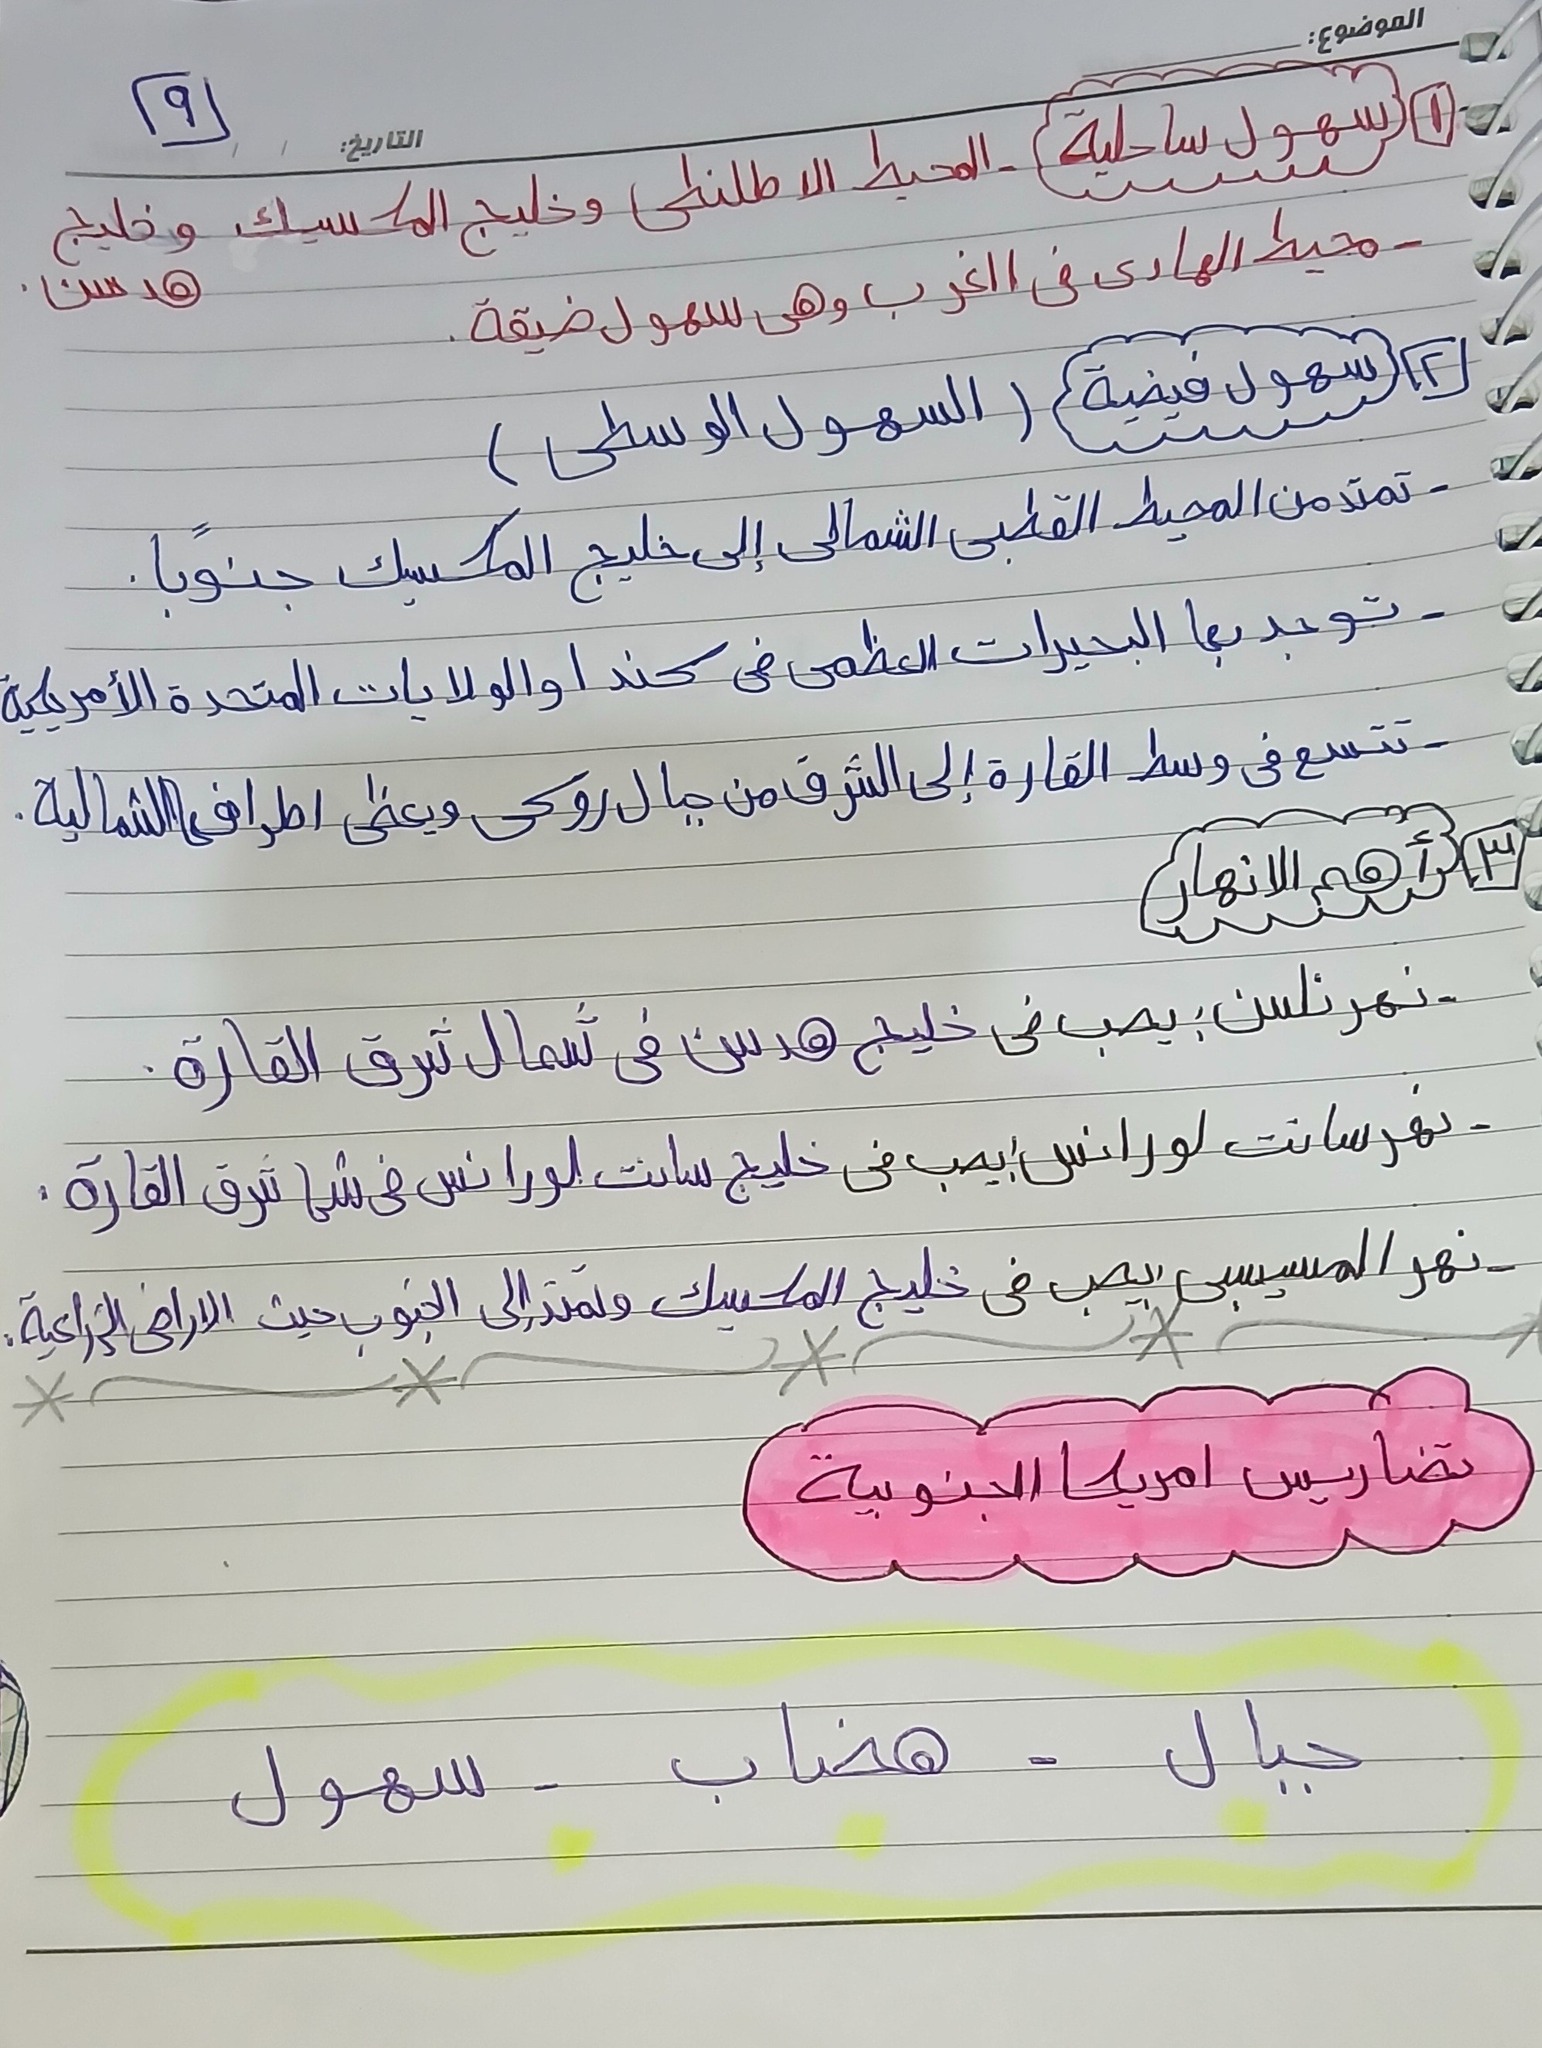 الموضوع:
التاريخ: / /
٩
١ سهول ساحلية - المحيط الاطلنطى وخليج المكسيك وخليج
هدسن .
- محيط الهادى فى الغرب وهى سهول ضيقة .
٢ سهول فيضية ( السهول الوسطى )
- تمتد من المحيط القطبى الشمالى إلى خليج المكسيك جنوبًا .
- توجد بها البحيرات العظمى فى كندا والولايات المتحدة الأمريكية
- تتسع فى وسط القارة إلى الشرق من جبال روكى ويغطى اطرافها الشمالية .
٣ أهم الانهار
- نهر نلسن : يصب فى خليج هدسن فى شمال شرق القارة .
- نهر سانت لورانس : يصب فى خليج سانت لورانس فى شرق القارة .
- نهر المسيسبى : يصب فى خليج المكسيك وتمتد إلى الجنوب حيث الاراضى الزراعية .
تضاريس امريكا الجنوبية
جبال - هضاب - سهول